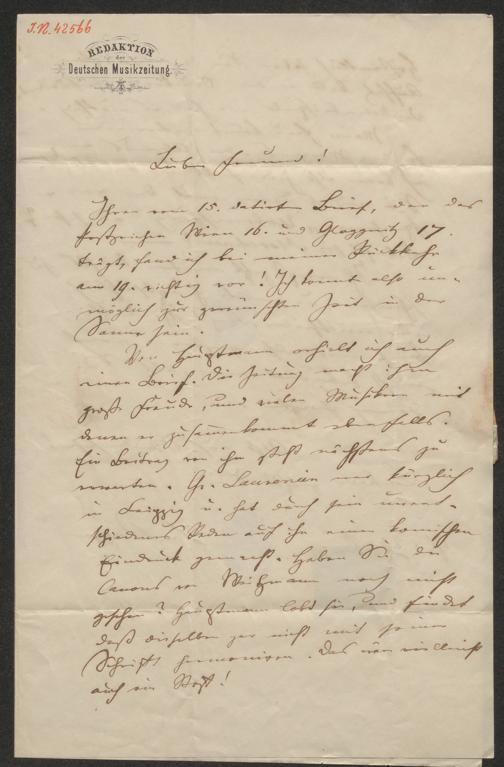 I.N. 42566
REDAKTION
der
Deutschen Musikzeitung.
Lieber Freund!
Ihren vom 15. datirten Brief, der das
Postzeichen Wien 16. und Gloggnitz 17.
trägt, fand ich bei meiner Rückkehr
am 19. richtig vor! Ich konnte also un-
möglich zur gewünschten Zeit in der
Sonne sein.
Von Hauptmann erhielt ich auch
einen Brief. Die Zeitung macht ihm
große Freude, und vielen Musikern mit
denen er zusammenkommt ebenfalls.
Ein Beitrag von ihm steht nächstens zu
erwarten. Gr. Laurencin war kürzlich
in Leipzig u. hat durch sein
Reden auch ihm einen komischen
Eindruck gemacht. Haben Sie die
Canons von Weitzmann noch nicht
gesehen? Hauptmann lobt sie, und findet
daß dieselben gar nicht mit seiner
Schrift harmoniren. Das wäre vielleicht
auch ein Stoff!